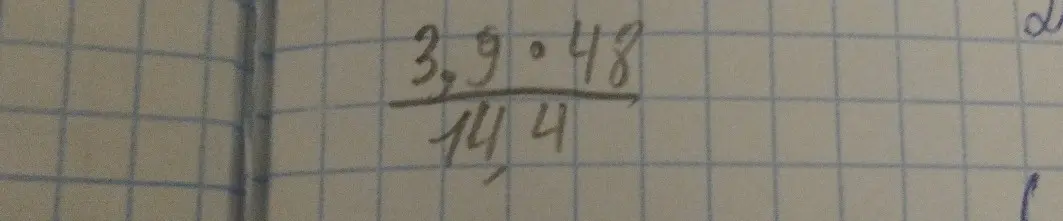 3,9 · 48
14,4